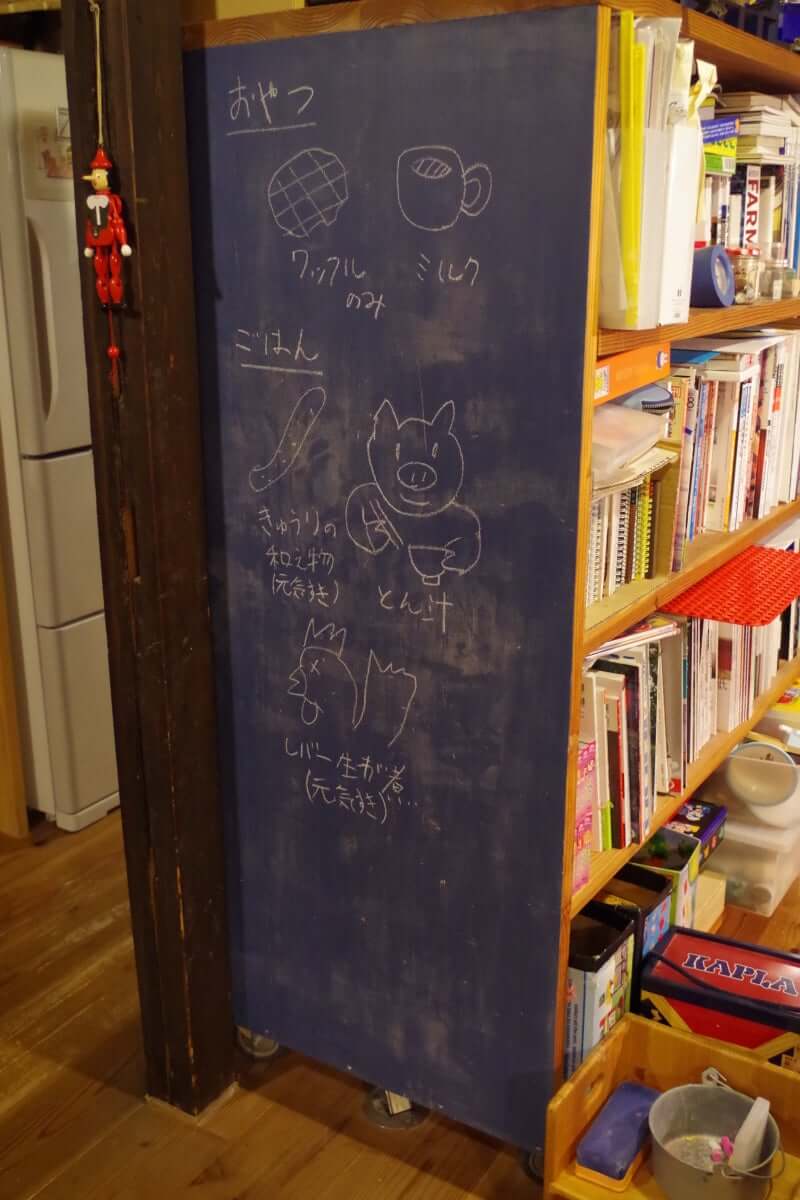 おやつ
ワッフル
のみ
ミルク
ごはん
きゅうりの
和え物
(元気すき)
とん汁
レバー生が煮...
(元気すき)
FARM
KAPLA